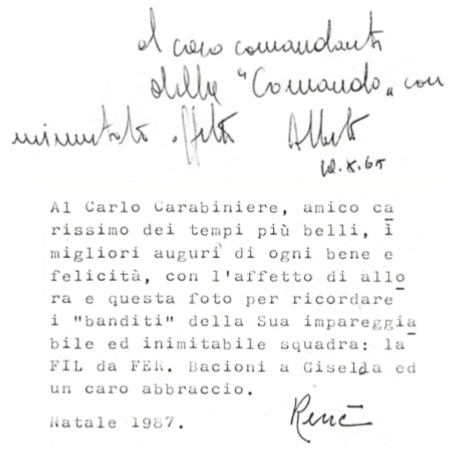 al caro comandante
della "Comando" con
immutato affetto Alberto
12.X.65
Al Carlo Carabiniere, amico ca
rissimo dei tempi più belli, i
migliori auguri di ogni bene e
felicità, con l'affetto di allo
ra e questa foto per ricordare
i "banditi" della Sua impareggia
bile ed inimitabile squadra: la
FIL da FER. Bacioni a Gisella ed
un caro abbraccio.
Natale 1987.
Renè